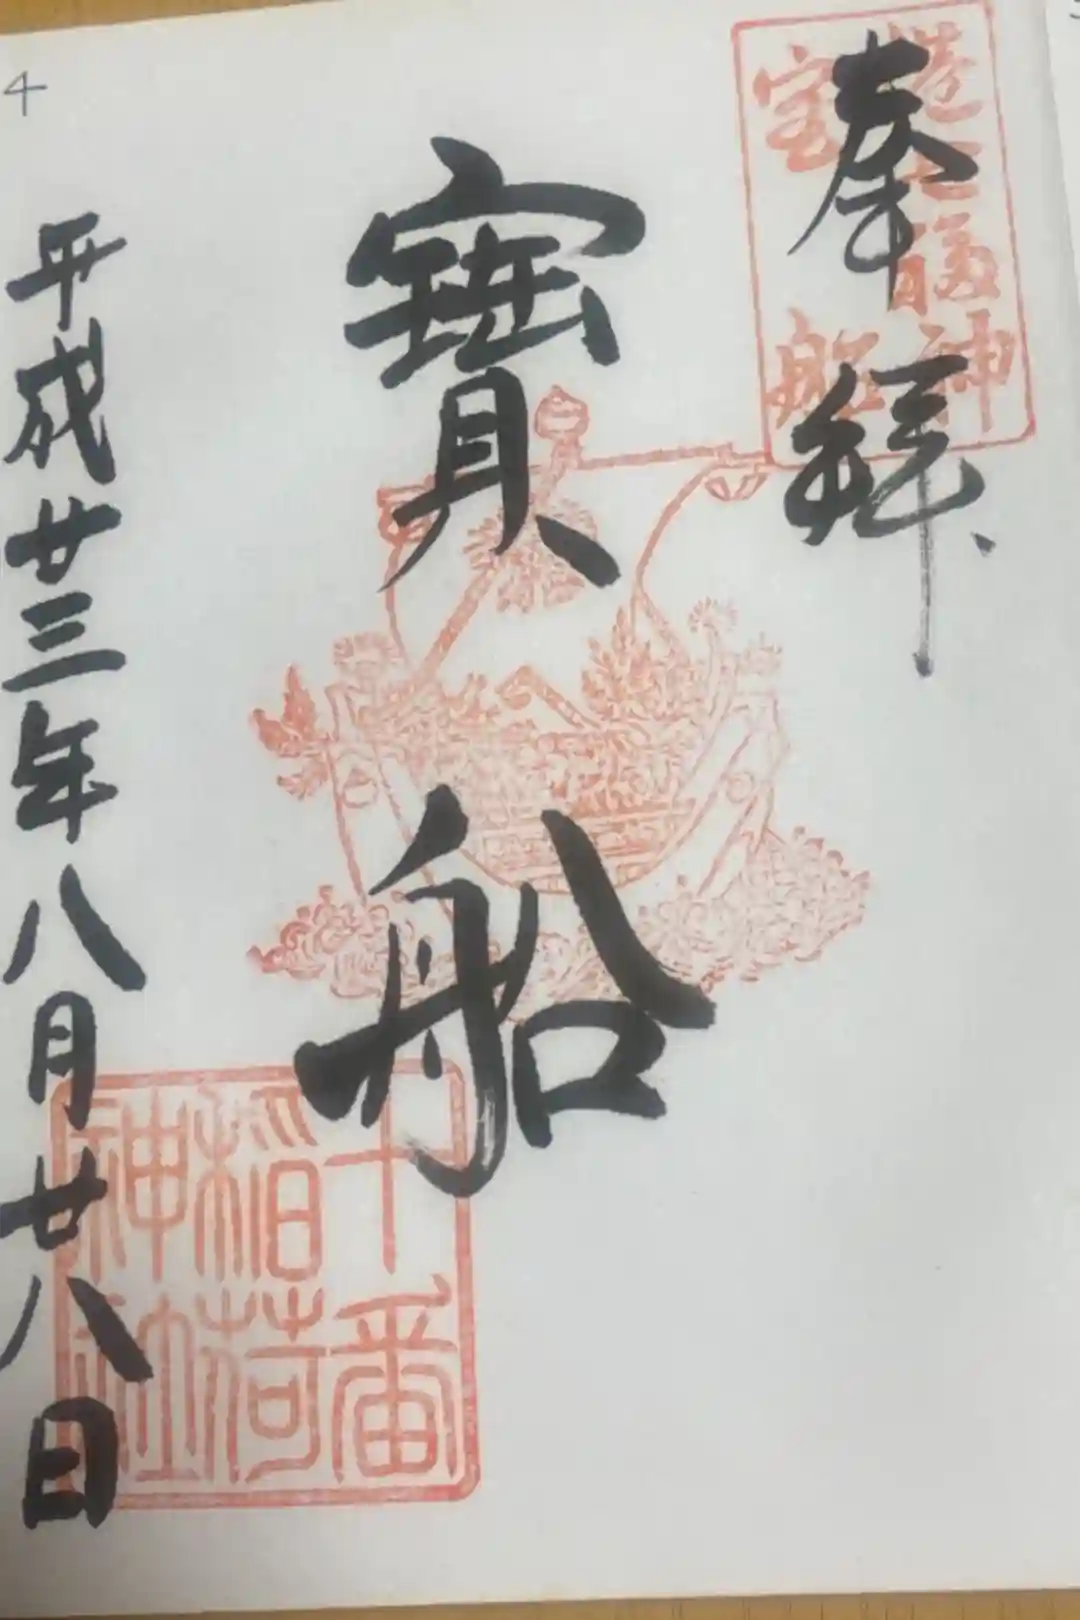 4
奉拝
港七福神
宝船
寳船
十番
稲荷
神社
平成廿三年八月廿八日